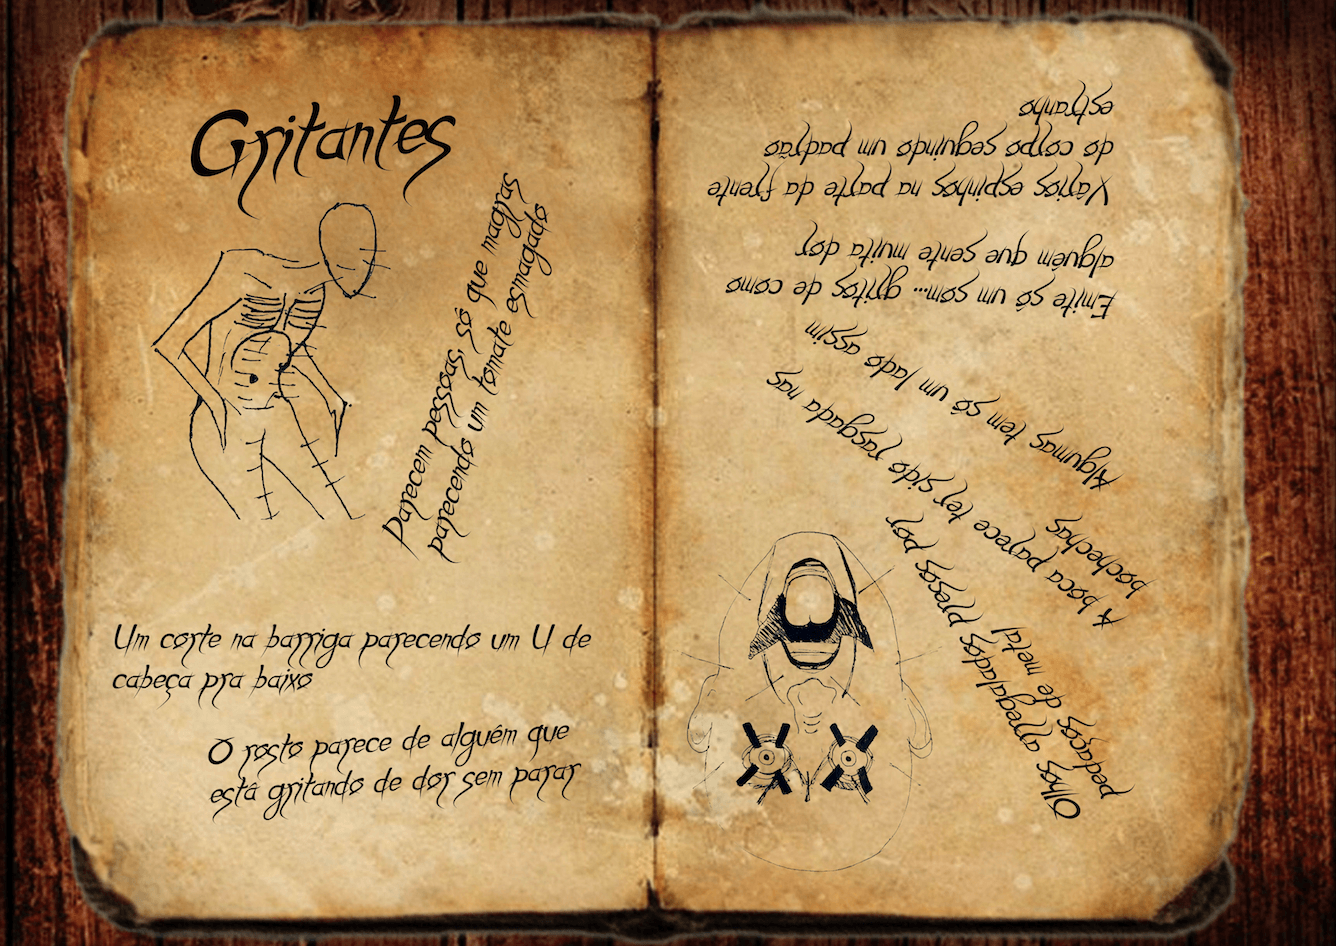 Gritantes
Parecem pessoas, só que magras
parecendo um tomate esmagado
Um corte na barriga parecendo um U de
cabeça pra baixo
O rosto parece de alguém que
está gritando de dor sem parar
Olhos arregalados presos por
pedaços de metal
A boca parece ter sido rasgada nas
bochechas
Algumas tem só um lado assim
Emite só um som... gritos de como
alguém que sente muita dor
Vários espinhos na parte da frente
do corpo seguindo um padrão
estranho